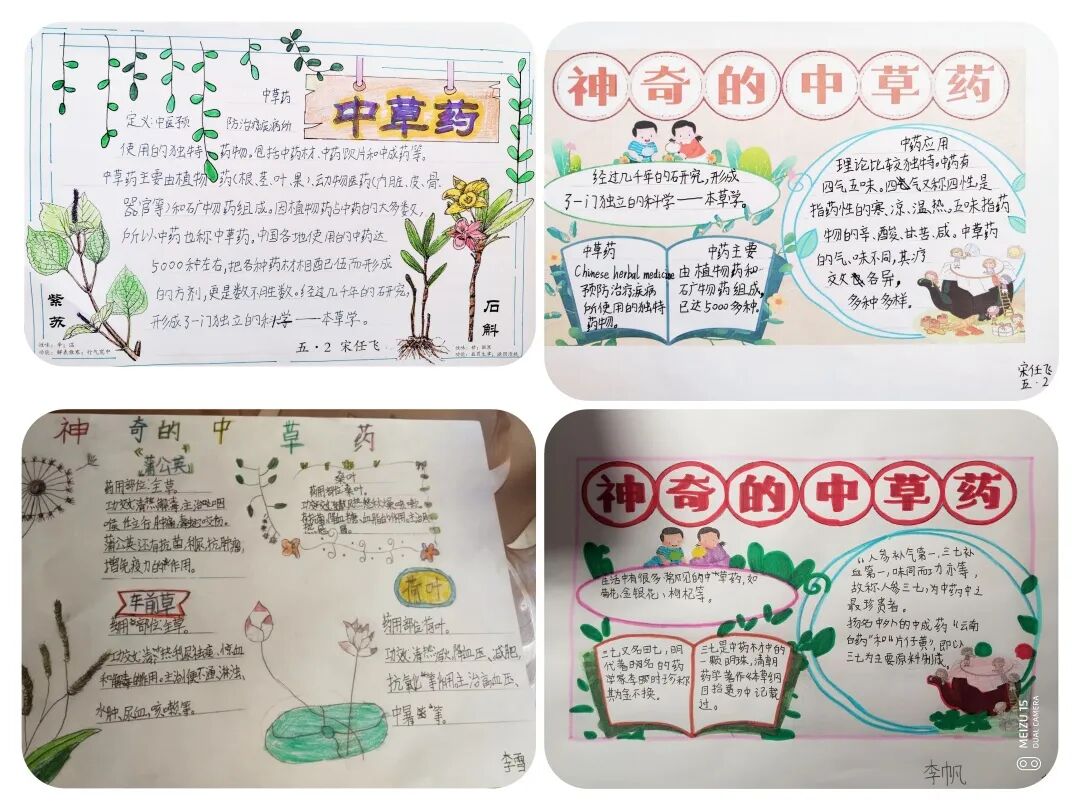 中草药
中草药
定义:中医预 防治疗疾病所
使用的独特 药物。包括中药材、中药饮片和中成药等。
中草药主要由植物 药(根、茎、叶、果)、动物医药(内脏、皮、骨、
器官等)和矿物药组成。因植物药占中药的大多数,
所以中药也称中草药。中国各地使用的中药达
5000种左右,把各种药材相配伍而形成
的方剂,更是数不胜数。经过几千年的研究,
形成了一门独立的科学——本草学。
紫苏
石斛
五·2 宋任飞
神奇的中草药
经过几千年的研究,形成
了一门独立的科学——本草学。
中草药
Chinese herbal medicine
预防治疗疾病
所使用的独特
药物。
中药主要
由植物药和
矿物药组成,
已达5000多种.
中药应用
理论比较独特。中药有
四气五味。四气又称四性,是
指药性的寒、凉、温、热。五味指药
物的辛、酸、甘、苦、咸。中草药
的气、味不同,其疗
效各异,
多种多样。
宋任飞
五·2
神奇的中草药
蒲公英
药用部位:全草。
蒲公英还有抗菌、利尿、抗肿瘤,
增免疫力的作用。
桑叶
药用部位:桑叶。
车前草
药用部位:全草。
水肿、尿血、咳嗽等。
荷叶
药用部位:荷叶。
抗氧化等作用。主治高血压、
中暑等。
李雪
神奇的中草药
生活中有很多常见的中草药,如
菊花、金银花、枸杞等。
三七又名田七,明
代著名的药
学家李时珍称
其为金不换。
三七是中药材中的
一颗明珠,清朝
药学著作《本草纲
目拾遗》中记载
过。
“人参补气第一,三七补
血第一,味同而功亦等,
故称人参三七,为中药中之
最珍贵者。
扬名中外的中成药“云南
白药”和“片仔黄”,即以
三七为主要原料制成
李帆
MEIZU 15
DUAL CAMERA